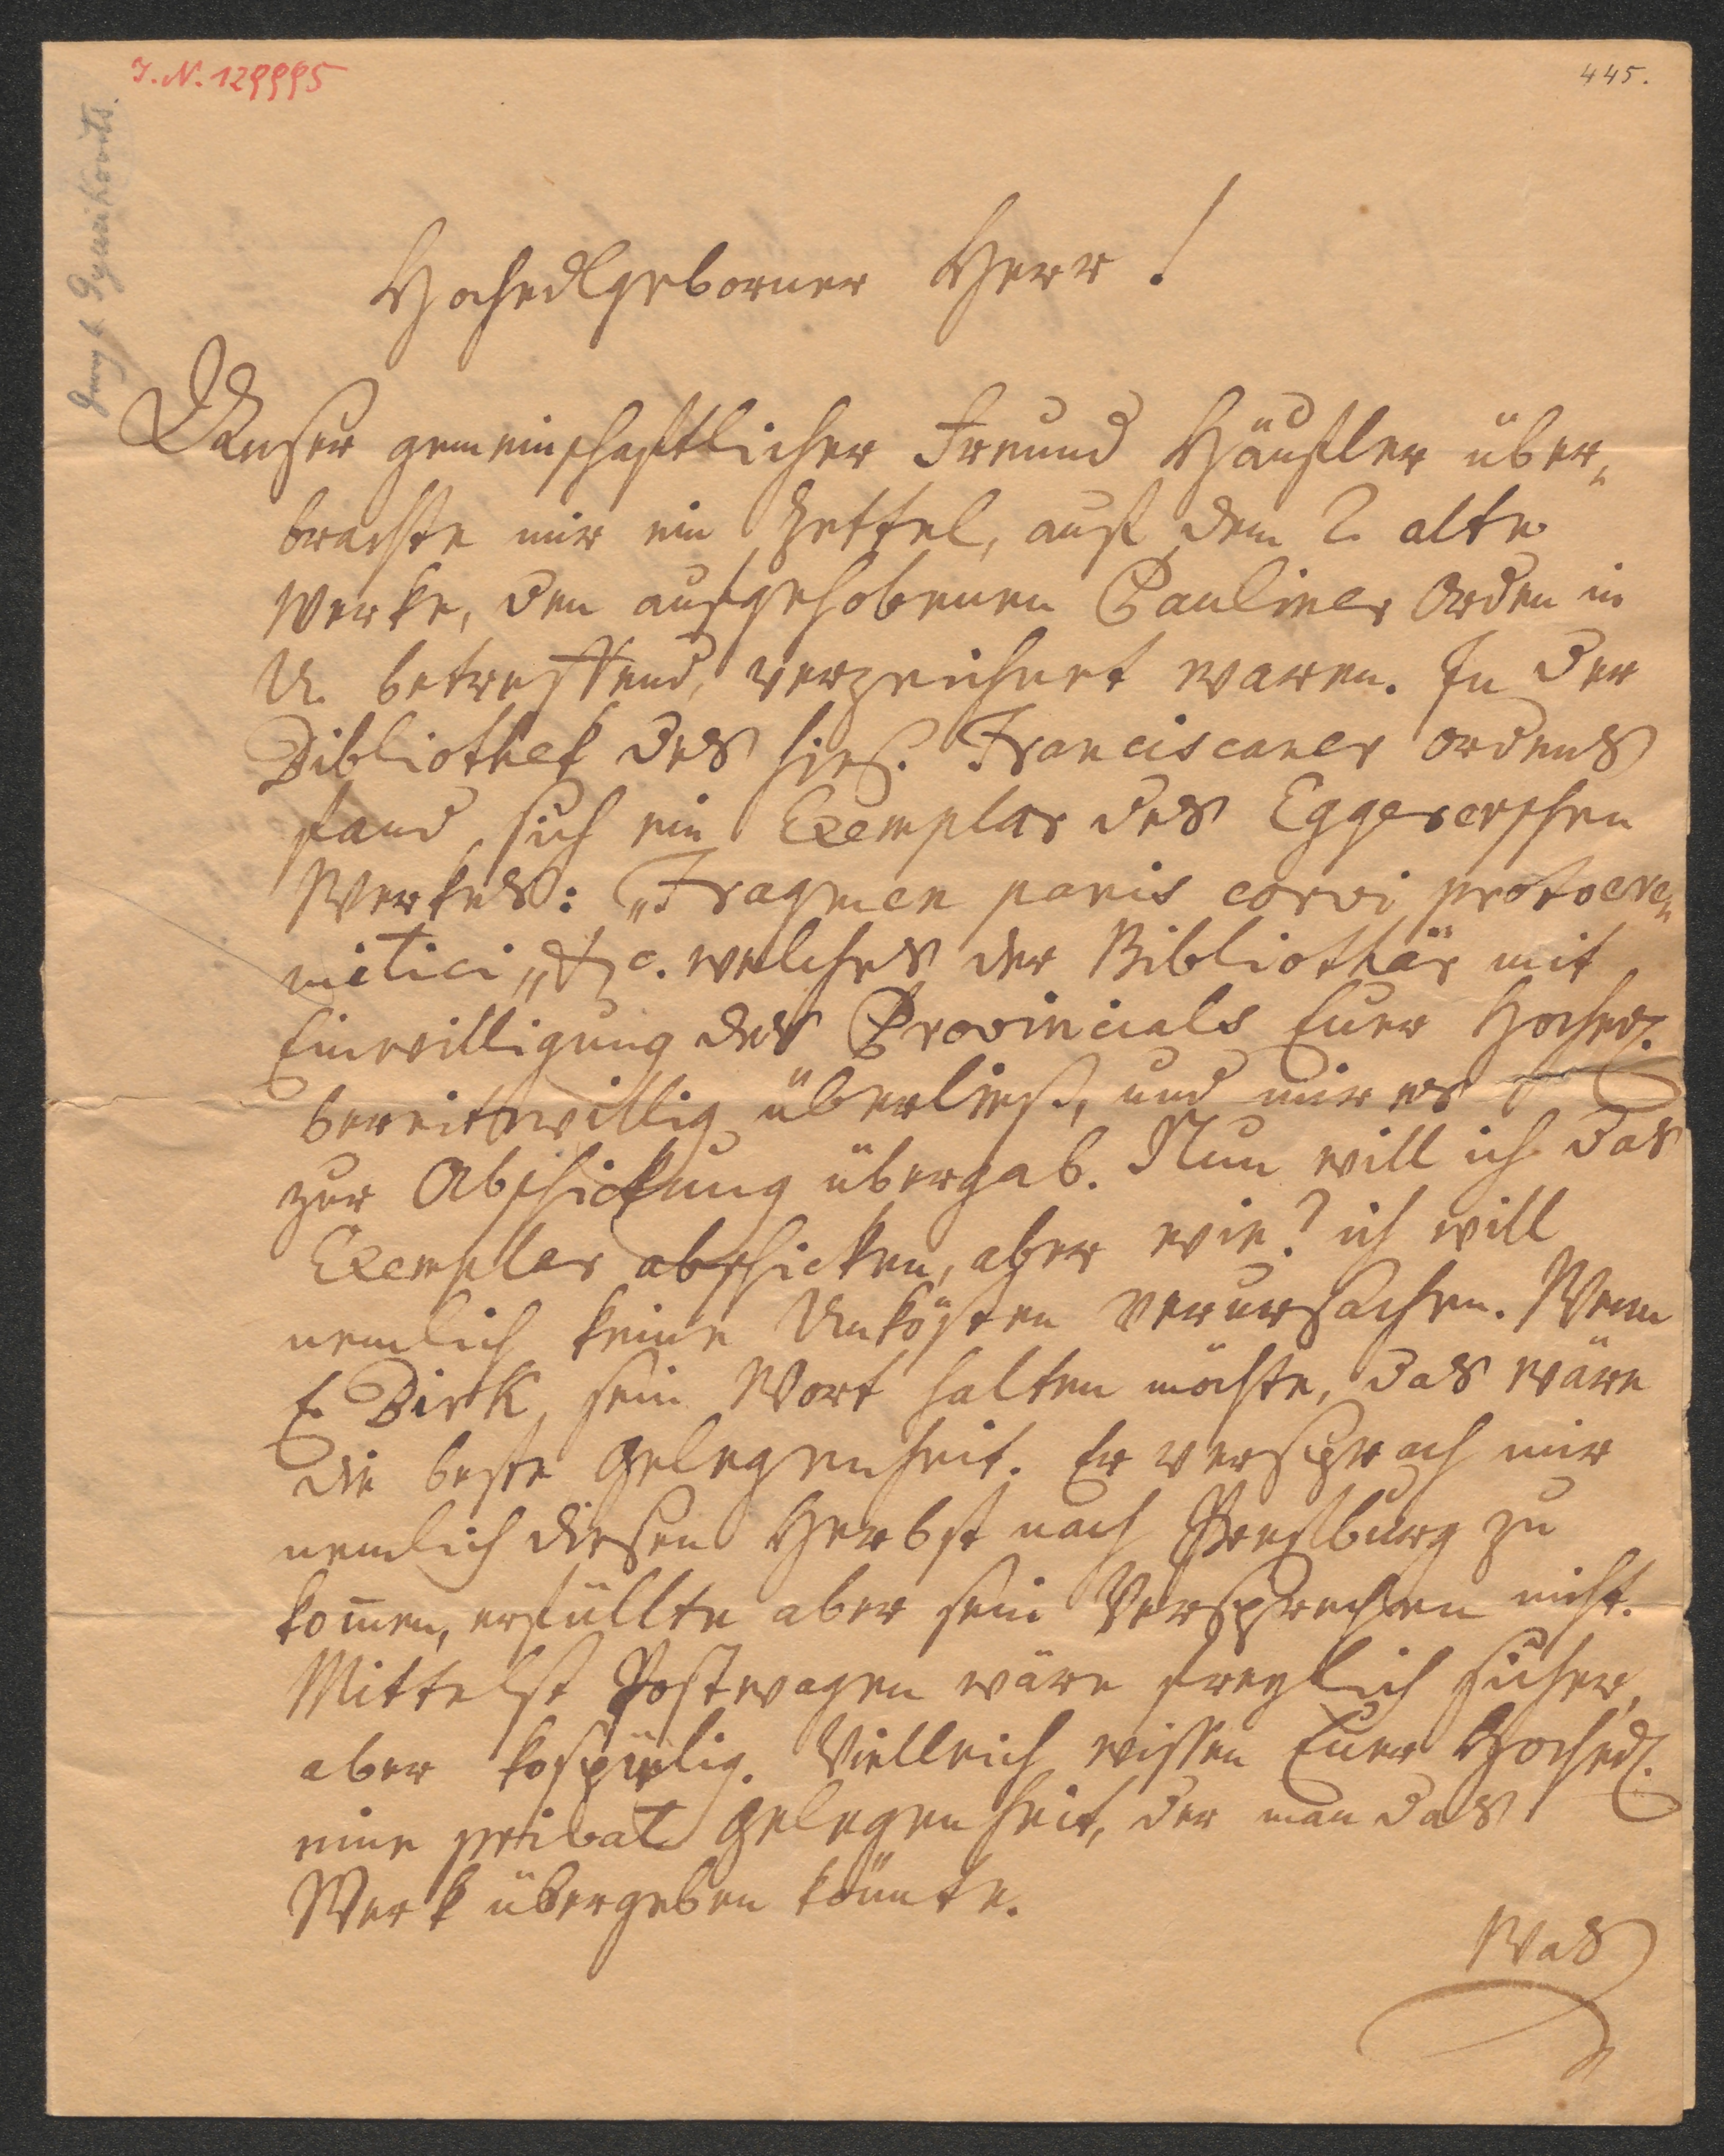 I. N. 129995
445.
Hochedlgeborner Herr!
Unser gemeinschaftlicher Freund Häufler über„
brachte mir ein Zettel, auf dem 2 alte
Werke, den aufgehobenen Pauliner Orden in
U. betreffend, verzeichnet waren. In der
Bibliothek des hies. Franciscaner Ordens
fand sich ein Exemplar des Eggererschen
Werkes: „Fragmen panis corvi protoere„
mitici„ &c. welches der Bibliothär mit
Einwilligung des Provincials Euer Hochedl.
bereitwillig überließ, und mir es
zur Abschickung übergab. Nun will ich das
Exemplar abschicken, aber wie? ich will
nemlich keine Unkösten verursachen. Wenn
H. Birk sein Wort halten möchte, das wäre
die beste Gelegenheit. Er versprach mir
nemlich diesen Herbst nach Preßburg zu
kom̄en, erfüllte aber sein Versprechen nicht.
Mittelst Postwagen wäre freylich sicher,
aber kospielig. Vielleich wissen Euer Hochedl.
eine privat Gelegenheit, der man das
Werk übergeben könnte.
Was